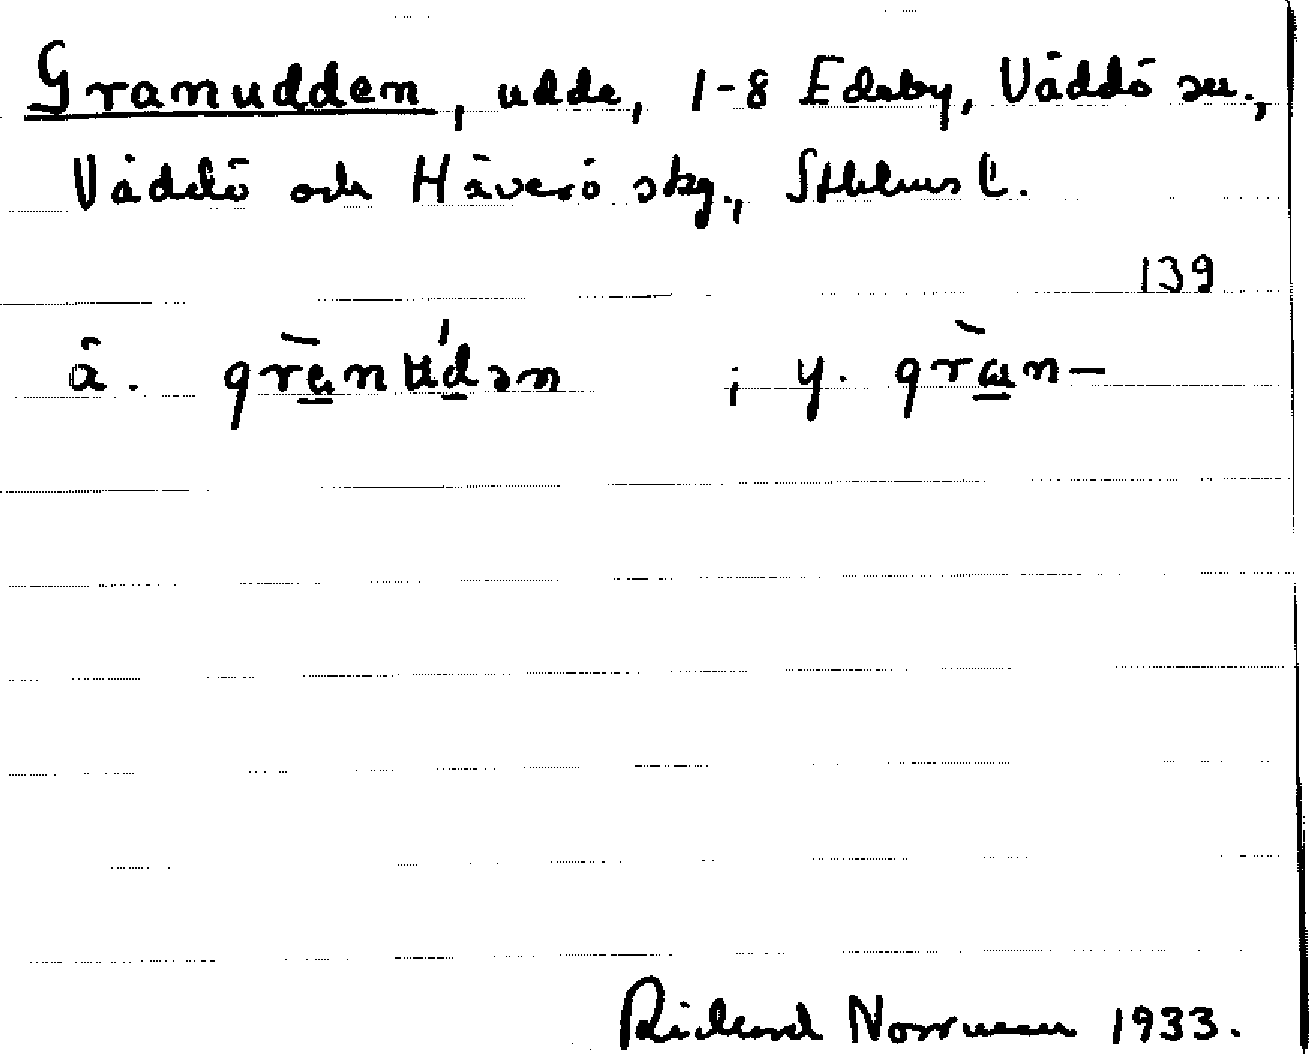 Granudden, udde, 1-8 Edeby, Väddö sn.,
Väddö och Häverö skg., Sthlms l.
139
ä. grènʉ́dən ; y. gràn-
Rickard Norrman 1933.